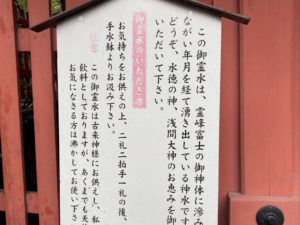 この御霊水は、霊峰富士の御神体に滲み
ながい年月を経て湧き出している神水です
どうぞ、水徳の神、浅間大神のお恵みを御
いただいて下さい。
御霊水のいただき方
お気持ちをお供えの上、二礼二拍手一礼の後、
手水鉢よりお汲み下さい。
注意
この御霊水は古来神様にお供えし、私
飲料としておりますが、あくまでも天
お気になさる方は沸かしてお使い下さ